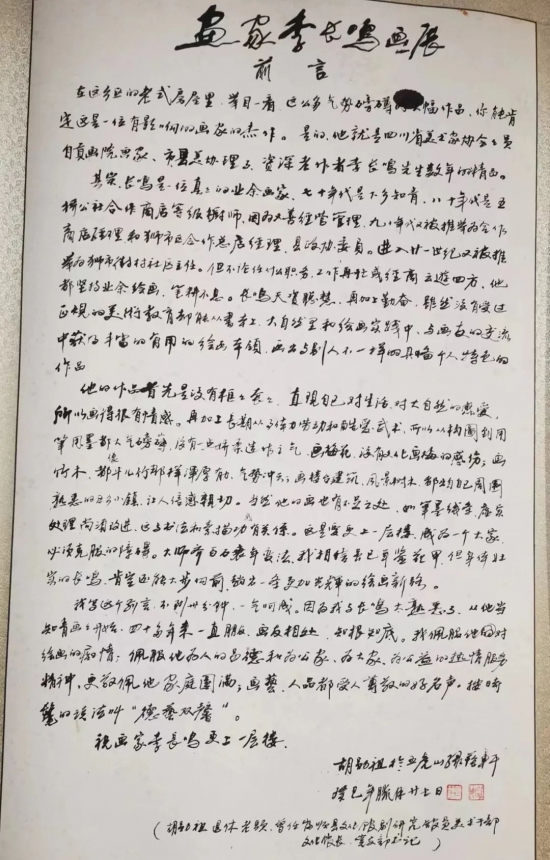 画家李长鸣画展
前言
在这乡的老式房屋里，举目一看，这么多气势磅礴的大幅作品，你能肯
定这是一位有影响的画家的杰作。是的，他就是四川省美术家协会会员
自贡画院画家、市县美协理事、资深老作者李长鸣先生数年的精品。
其实，长鸣是一位真正的业余画家，七十年代是下乡知青，八十年代是五
桥公社合作商店等级厨师，因为又善经营管理，九十年代又被推举为合作
商店经理和狮市区合作总店经理、县政协委员。进入廿一世纪又被推
举为狮市街村社区主任。但不论任什么职务，工作再忙或经商云游四方，他
都坚持业余绘画，笔耕不息。长鸣天资聪慧，再加上勤奋，虽然没有受过
正规的美术教育却能从书本上、大自然里和绘画实践中，与画友的交流
中获得丰富的有用的绘画本领，画出与别人不一样的具备个人特色的
作品
他的作品首先是没有框框套套，直观自己对生活、对大自然的热爱，
所以画得很有情感。再加上长期从事体力劳动和酷爱武术，所以从构图到用
笔用墨都大气磅礴，没有一点矫柔造作之气，画梅花，没有文化画梅的感伤；画
竹木，都像斗儿竹那样浑厚有劲，气势冲云；画楼台建筑、风景树木，都如自己周围
熟悉的乡村小镇，让人倍感亲切。当然他的画也有不足之处，如笔墨线条、虚实
处理尚须改进，这与书法和素描功有关系。这是要更上一层楼，成为一个大家
必须克服的障碍。大师齐白石衰年变法，我相信长已年鉴花甲，但身体壮
实的长鸣，肯定还能大步向前，跨出一条更加光辉的绘画新路。
我写这个前言，不到卅分钟，一气呵成。因为我与长鸣太熟悉了，从他当
知青画画开始，四十多年来一直跟版，画友相处，知根知底。我佩服他的对
绘画的痴情；佩服他为人的品德和为公家、为大家、为公益的热情服务
精神，更敬佩他家庭圆满；画艺、人品都受人尊敬的好名声。挫时
髦的说法叫“德艺双馨”。
祝画家李长鸣更上一层楼。
胡幼祖於五虎山绿轩
癸巳年腊月廿七日